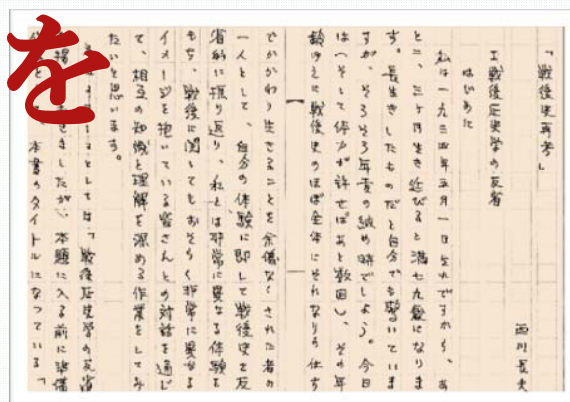 「戦後史再考」
西川長夫
I 戦後歴史学の反省
はじめに
私は一九三四年五月一日生れですから、あ
と二、三ヶ月生き延びると満七九歳になりま
す。長生きしたものだと自分でも驚いていま
すが、そろそろ年貢の納め時でしょう。今日
は(そして体力が許せばあと数回)、その年
齢ゆえに戦後史のほぼ全体にそれなりの仕方
でかかわり生きることを余儀なくされた者の
一人として、自分の体験に即して戦後史を反
省的に振り返り、私とは非常に異なる体験を
もち、戦後に関してもおそらく非常に異なる
イメージを抱いている皆さんとの対話を通じ
て、相互の知識と理解を深める作業をしてみ
たいと思います。
としては、「戦後歴史学の反省
ましたが、本題に入る前に準備
本書のタイトルになっている「
を